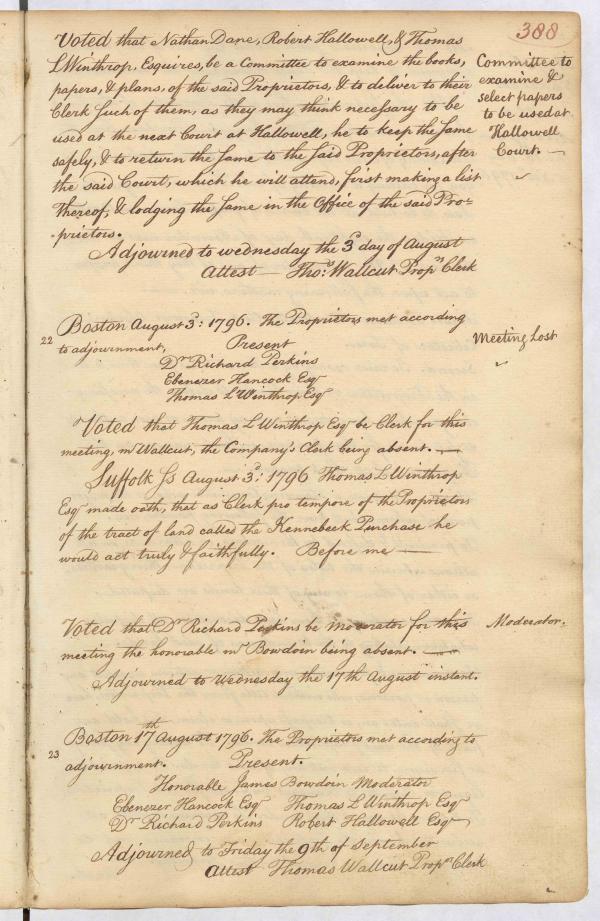 388
Voted that Nathan Dane, Robert Hallowell, & Thomas
L Winthrop, Esquires, be a Committee to examine the books,
papers, & plans, of the said Proprietors, & to deliver to their
Clerk such of them, as they may think necessary to be
used at the next Court at Hallowell, he to keep the same
safely, & to return the same to the said Proprietors, after
the said Court, which he will attend, first making a list
thereof, & lodging the same in the Office of the said Pro=
=prietors.
Committee to
examine &
select papers
to be used at
Hallowell
Court. —
Adjourned to wednesday the 3d day of August
Attest — Thos. Wallcut Props Clerk
22 Boston August 3d: 1796. The Proprietors met according
to adjournment, Present
Meeting Lost
Dr Richard Perkins
Ebenezer Hancock Esqr
Thomas L Winthrop Esqr
Voted that Thomas L Winthrop Esqr be Clerk for this
meeting, mr Wallcut, the Company's Clerk being absent. —
Suffolk Ss August 3d: 1796 Thomas L Winthrop
Esqr made oath, that as Clerk pro tempore of the Proprietors
of the tract of land called the Kennebeck Purchase he
would act truly & faithfully. Before me —
Voted that Dr Richard Perkins be moderator for this
meeting the honorable mr Bowdoin being absent. —
Moderator.
Adjourned to Wednesday the 17th August instant.
23 Boston 17th August 1796. The Proprietors met according to
adjournment. Present.
Honorable James Bowdoin Moderator
Ebenezer Hancock Esqr Thomas L Winthrop Esqr
Dr Richard Perkins Robert Hallowell Esqr
Adjourned to Friday the 9th of September
Attest Thomas Wallcut Props Clerk